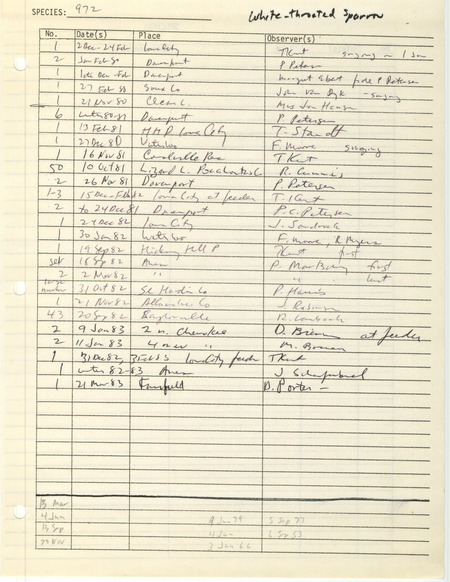 SPECIES: 972 White-throated Sparrow
No. Date(s) Place Observer(s)
1 2 Dec-24 Feb Iowa City T Kent singing on 1 Jan
2 Jan Feb 80 Davenport P Petersen
1 Dec-Feb Davenport fide P Petersen
1 27 Feb 80 Sioux Co John Van Dyk - singing
1 21 Nov 80 Clear L. Mrs Jon Hansen
6 winter 80-81 Davenport P. Petersen
1 13 Feb 81 Iowa City T. Staudt
1 27 Dec 80 Waterloo F. Moore singing
1 16 Nov 81 Coralville Res T Kent
50 10 Oct 81 Lizard L. Pocahontas Co R. Cummins
2 26 Mar 81 Davenport P. Petersen
1-3 15 Dec-Feb 82 Iowa City at feeder T. Kent
2 to 24 Dec 81 Davenport P. C. Petersen
1 24 Dec 82 Iowa City J. Sandrock
1 30 Jan 82 Waterloo F. Moore, R Myers
1 19 Sep 82 Hickory Hill P T Kent first
sev 18 Sep 82 Ames P. Martsching first
2 2 Nov 82 " " " last
large number 31 Oct 82 Se Hardin Co P. Harris
1 21 Nov 82 Allamakee Co J
43 20 Sep 82
2 9 Jan 83 2 m. Cherokee D. Bierman at feeder
2 11 Jan 83 4 m " M.
1 31 Dec 82, 3 Feb 83 Iowa City feeder T Kent
1 winter 82-83 Ames J
1 21 Mar 83 Fairfield D. Porter -
13 Mar
4 Jun 9 Jan 79 5 Sep 77
13 Sep 4 Jun 6 Sep 53
29 Nov 3 Jun 66